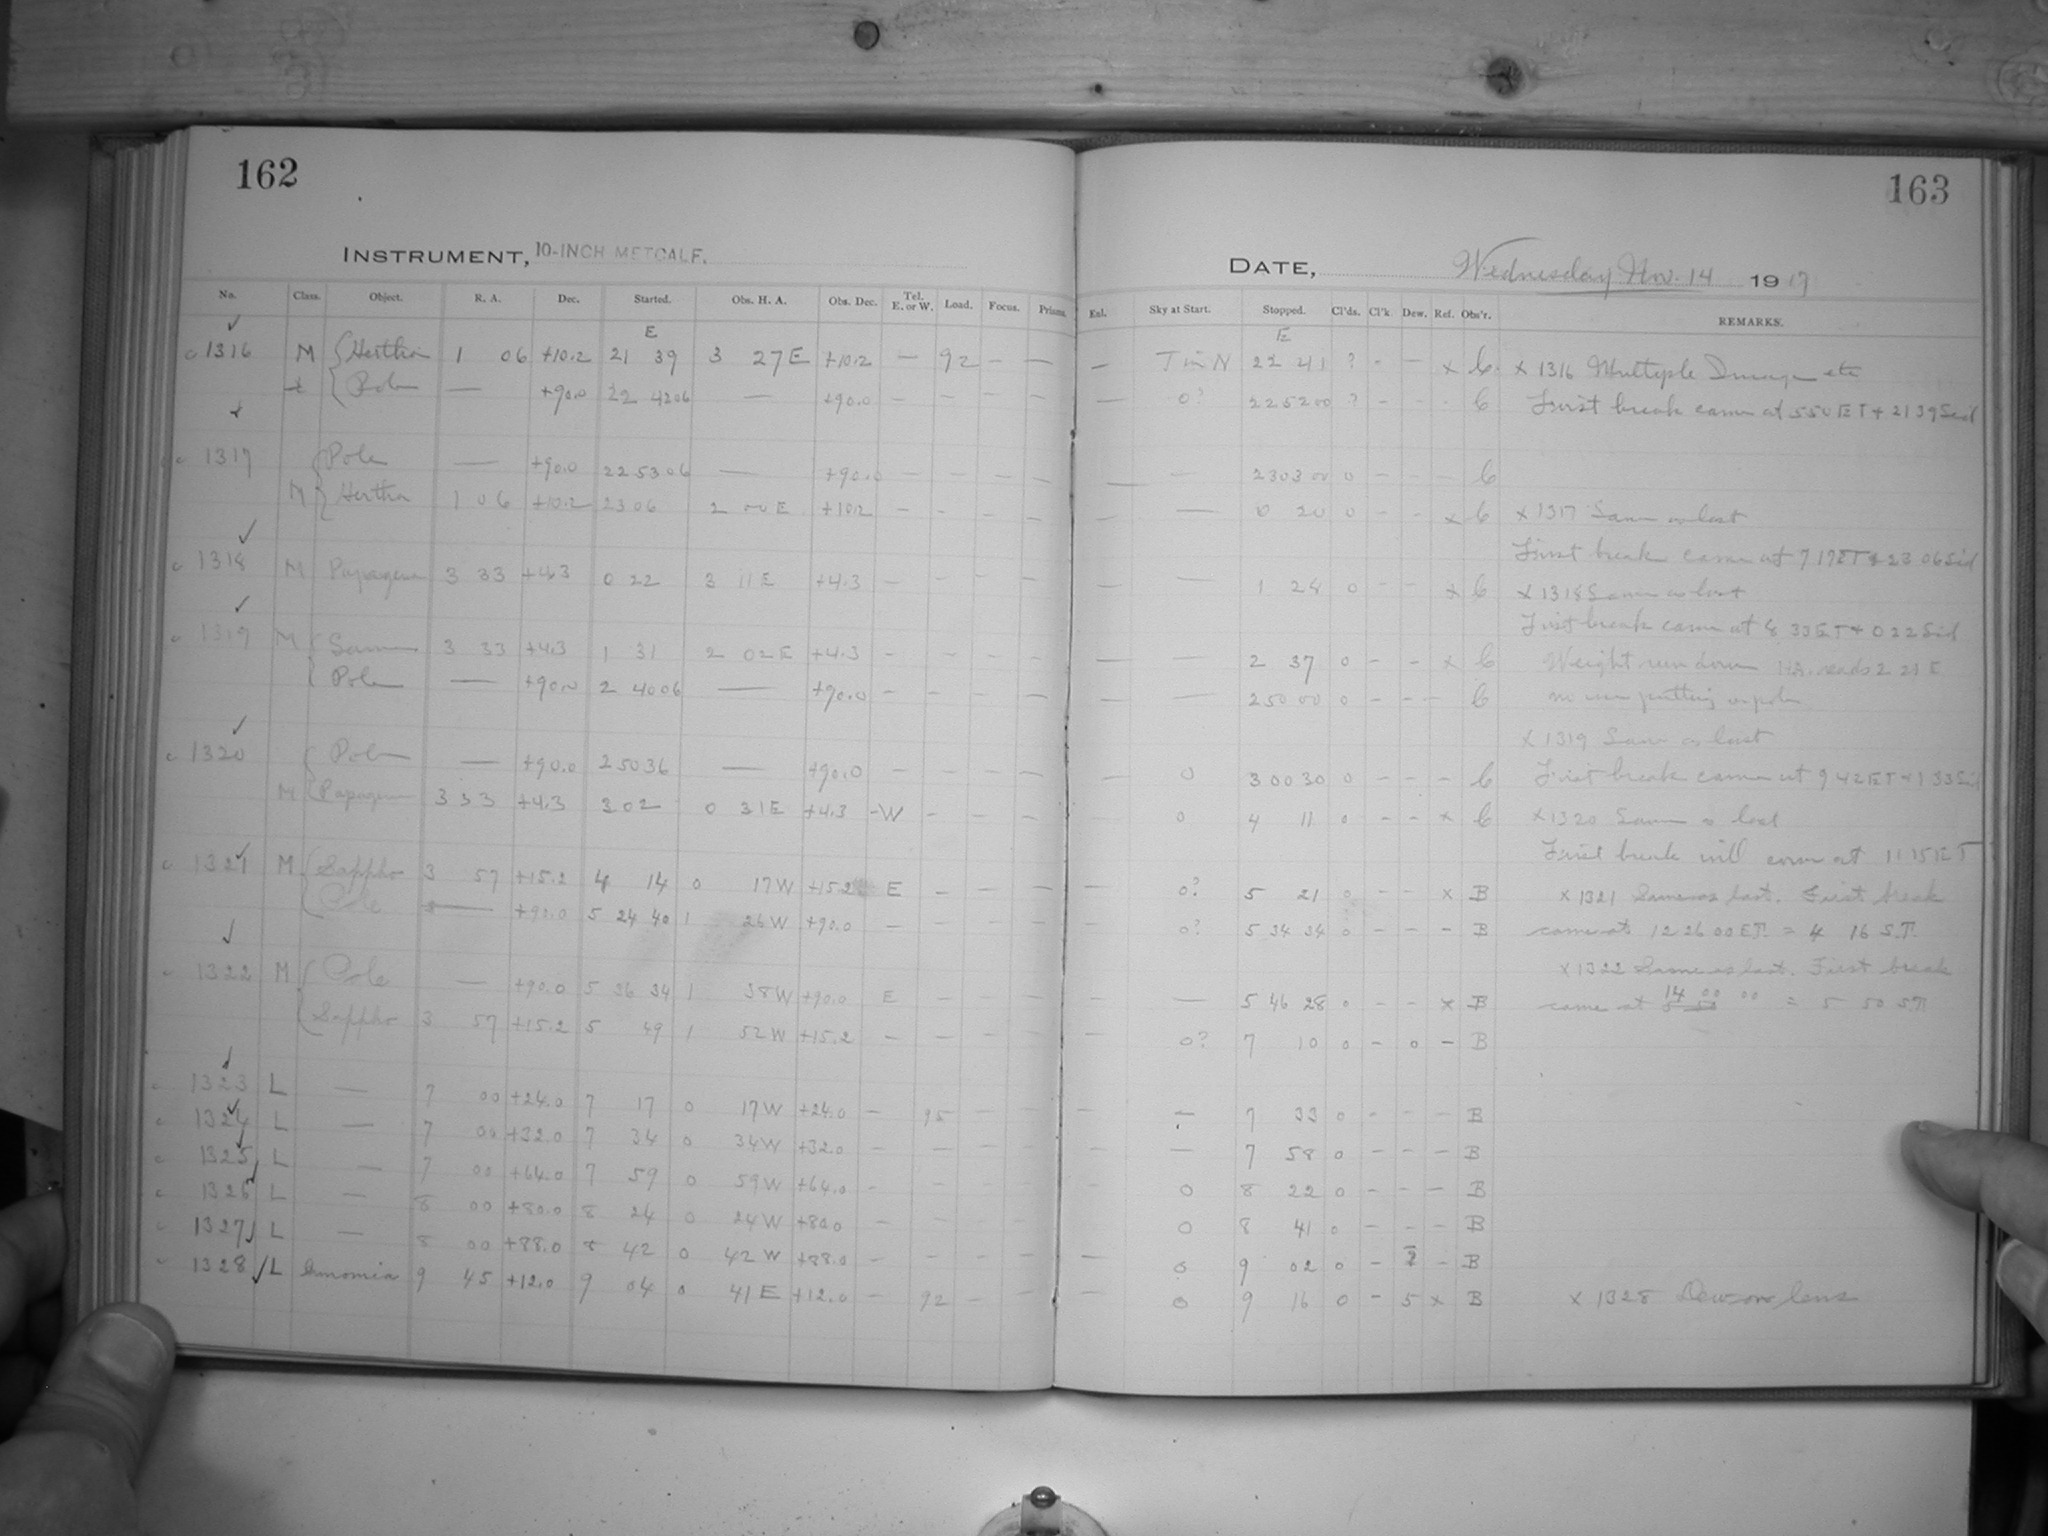 162
163
INSTRUMENT, 10-INCH METCALF.
DATE, Wednesday Nov. 14 1917
No. Class. Object. R. A. Dec. Started. Obs. H. A. Obs. Dec. Tel. E. or W. Load. Focus. Prisms. Enl. Sky at Start. Stopped. Cl'ds. Cl'k. Dew. Ref. Obs'r. REMARKS.
E E
c 1316 M Hertha 1 06 +10.2 21 39 3 27 E +10.2 — 92 — — — 22 41 ? - — x C x 1316 Multiple Image etc
Pole — +90.0 22 42 06 — +90.0 — — — — — 0? 22 52 00 ? - - - C First break came at 5 50 ET + 21 39 Sid
c 1317 Pole — +90.0 22 53 06 — +90.0 — — — — — — 23 03 00 0 - - - C
M Hertha 1 06 +10.2 23 06 2 00 E +10.2 — — — — — — 0 20 0 - - x C x 1317 Same as last
First break came at 7 17 ET + 23 06 Sid
c 1318 M Papagena 3 33 +4.3 0 22 3 11 E +4.3 — — — — — — 1 28 0 - - x C x 1318 Same as last
First break came at 8 33 ET + 0 22 Sid
c 1319 M Same 3 33 +4.3 1 31 2 02 E +4.3 — — — — — — 2 37 0 - - x C Weight run down HA. reads 2 21 E
Pole — +90.0 2 40 06 — +90.0 — — — — — — 2 50 00 0 - - - C no use putting on pole
x 1319 Same as last
c 1320 Pole — +90.0 2 50 36 — +90.0 — — — — — 0 3 00 30 0 - - - C First break came at 9 42 ET + 1 33 Sid
M Papagena 3 33 +4.3 3 02 0 31 E +4.3 -W — — — 0 4 11 0 - - x C x 1320 Same as last
First break will come at 11 15 ET
c 1321 M Sappho 3 57 +15.2 4 14 0 17 W +15.2 E — — — — 0? 5 21 0 - - x B x 1321 Same as last. First break
Pole — +90.0 5 24 40 1 26 W +90.0 — — — — — 0? 5 34 34 0 - - - B came at 12 26 00 E.T. = 4 16 S.T.
x 1322 Same as last. First break
c 1322 M Pole — +90.0 5 36 34 1 38 W +90.0 E — — — — — 5 46 28 0 - - x B came at 14 00 00 = 5 50 S.T.
Sappho 3 57 +15.2 5 49 1 52 W +15.2 — — — — — 0? 7 10 0 - 0 - B
c 1323 L — 7 00 +24.0 7 17 0 17 W +24.0 — 95 — — — — 7 33 0 - - - B
c 1324 L — 7 00 +32.0 7 34 0 34 W +32.0 — — — — — — 7 58 0 - - - B
c 1325 L — 7 00 +64.0 7 59 0 59 W +64.0 — — — — — 0 8 22 0 - - - B
c 1326 L — 8 00 +80.0 8 24 0 24 W +80.0 — — — — 0 8 41 0 - - - B
c 1327 L — 8 00 +88.0 8 42 0 42 W +88.0 — — — — — 0 9 02 0 - ? - B
1328 L 9 45 +12.0 9 04 0 41 E +12.0 — 92 — — — 0 9 16 0 - 5 x B x 1328 Dew on lens